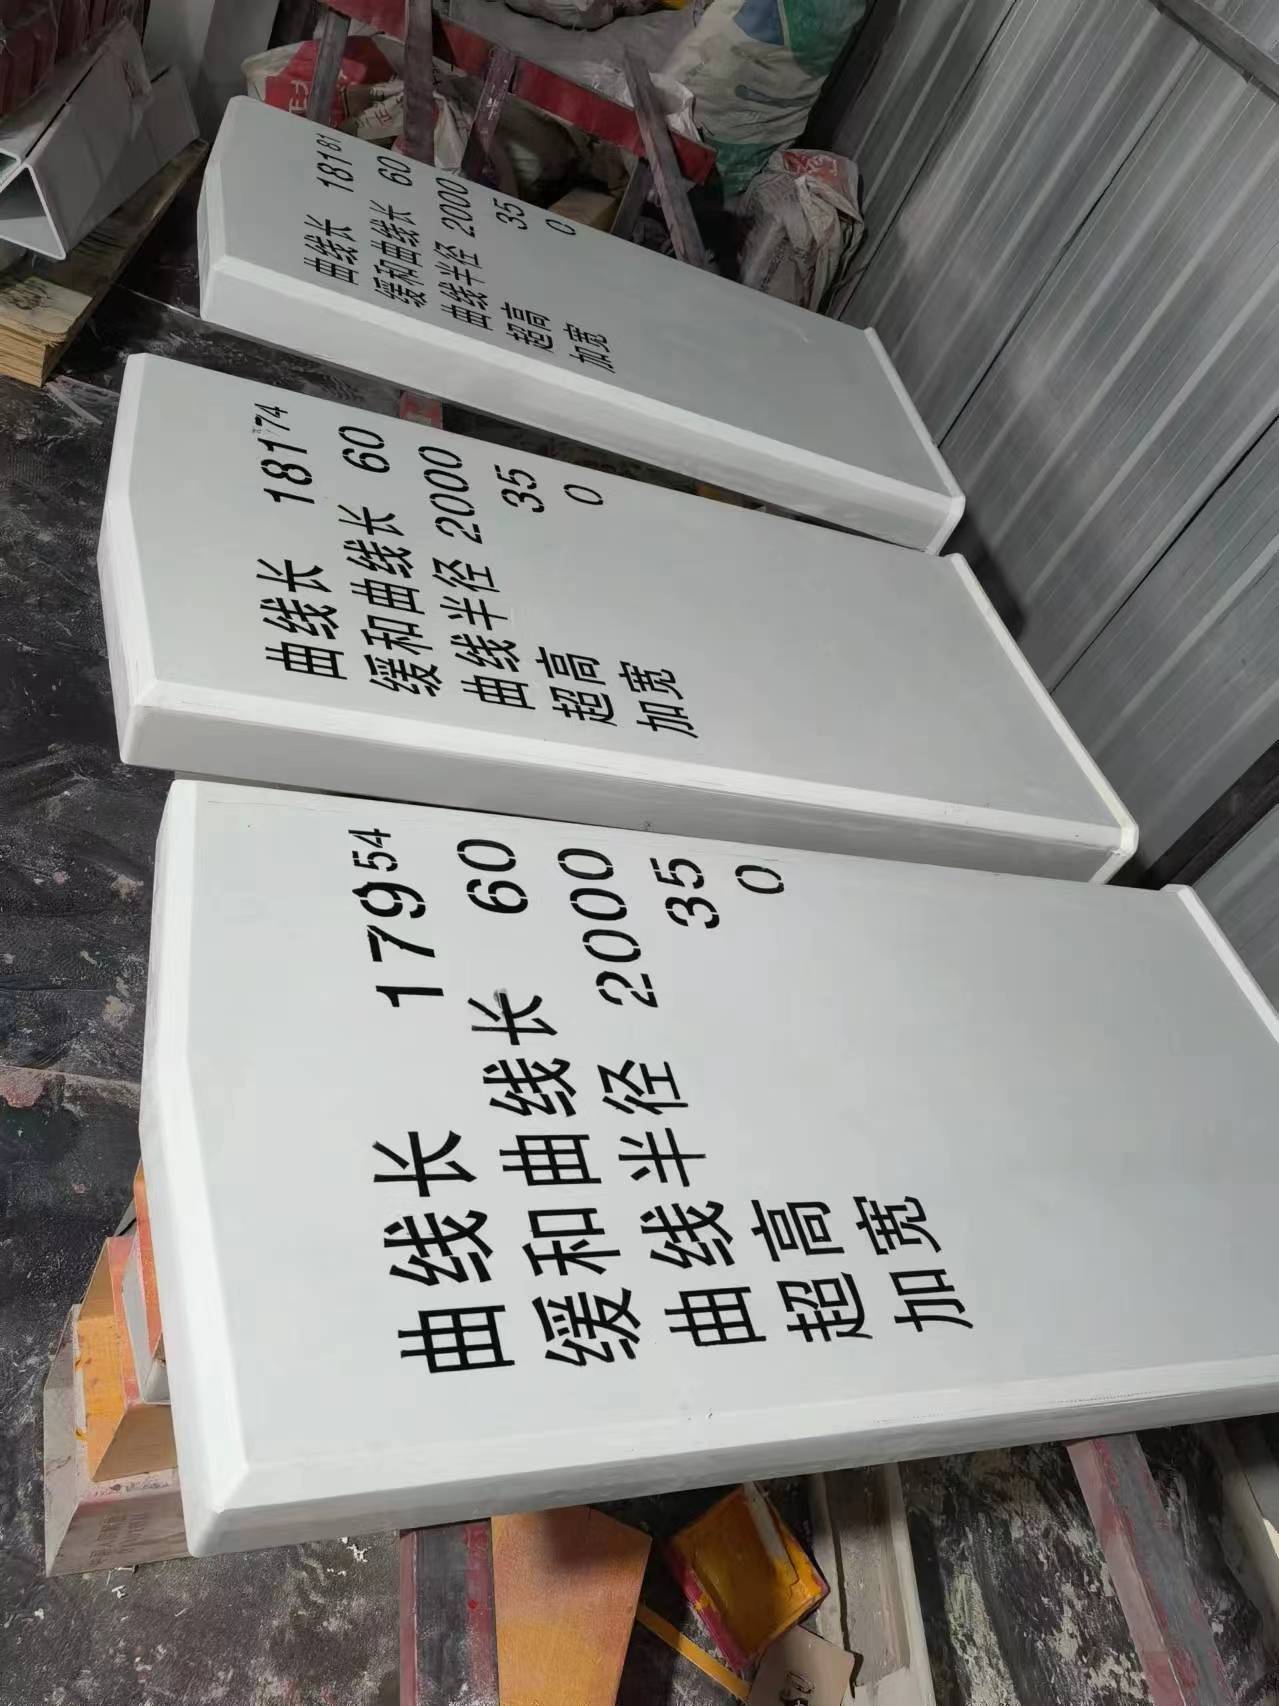 曲线长 181⁸¹
缓和曲线长 60
曲线半径 2000
超高 35
加宽 0
曲线长 181⁷⁴
缓和曲线长 60
曲线半径 2000
超高 35
加宽 0
曲线长 179⁵⁴
缓和曲线长 60
曲线半径 2000
超高 35
加宽 0